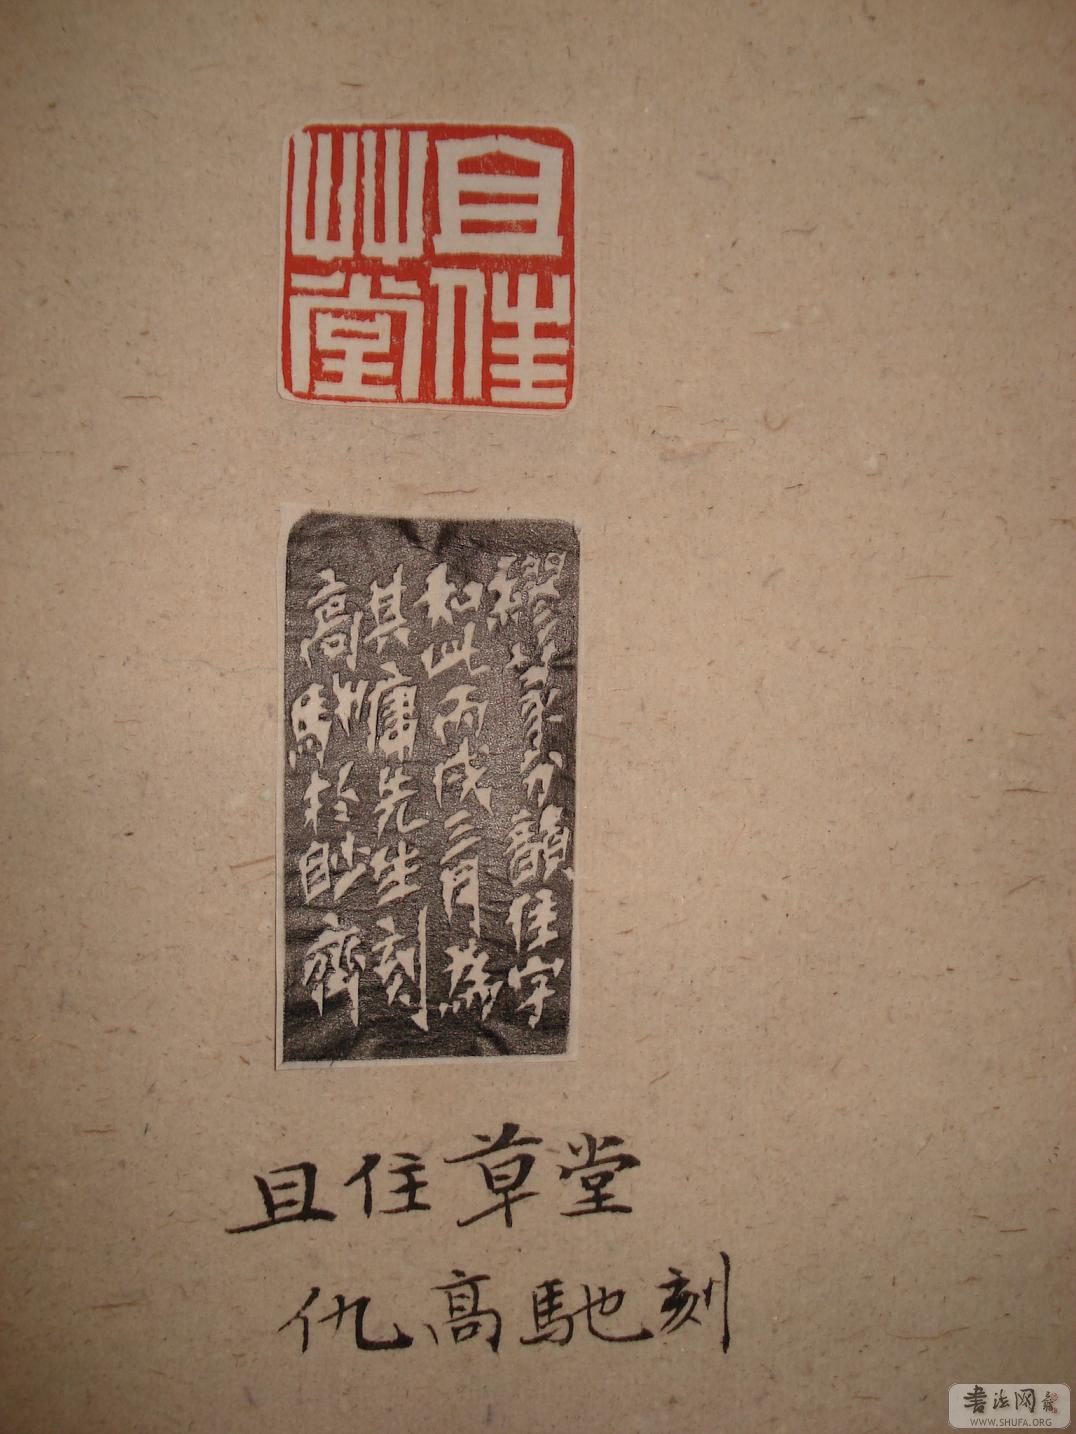 且住
艸堂
繆篆分韻住字
如此丙戌三月為
其庸先生刻
高馳於眇齊
且住草堂
仇高馳刻
書法网
WWW.SHUFA.ORG